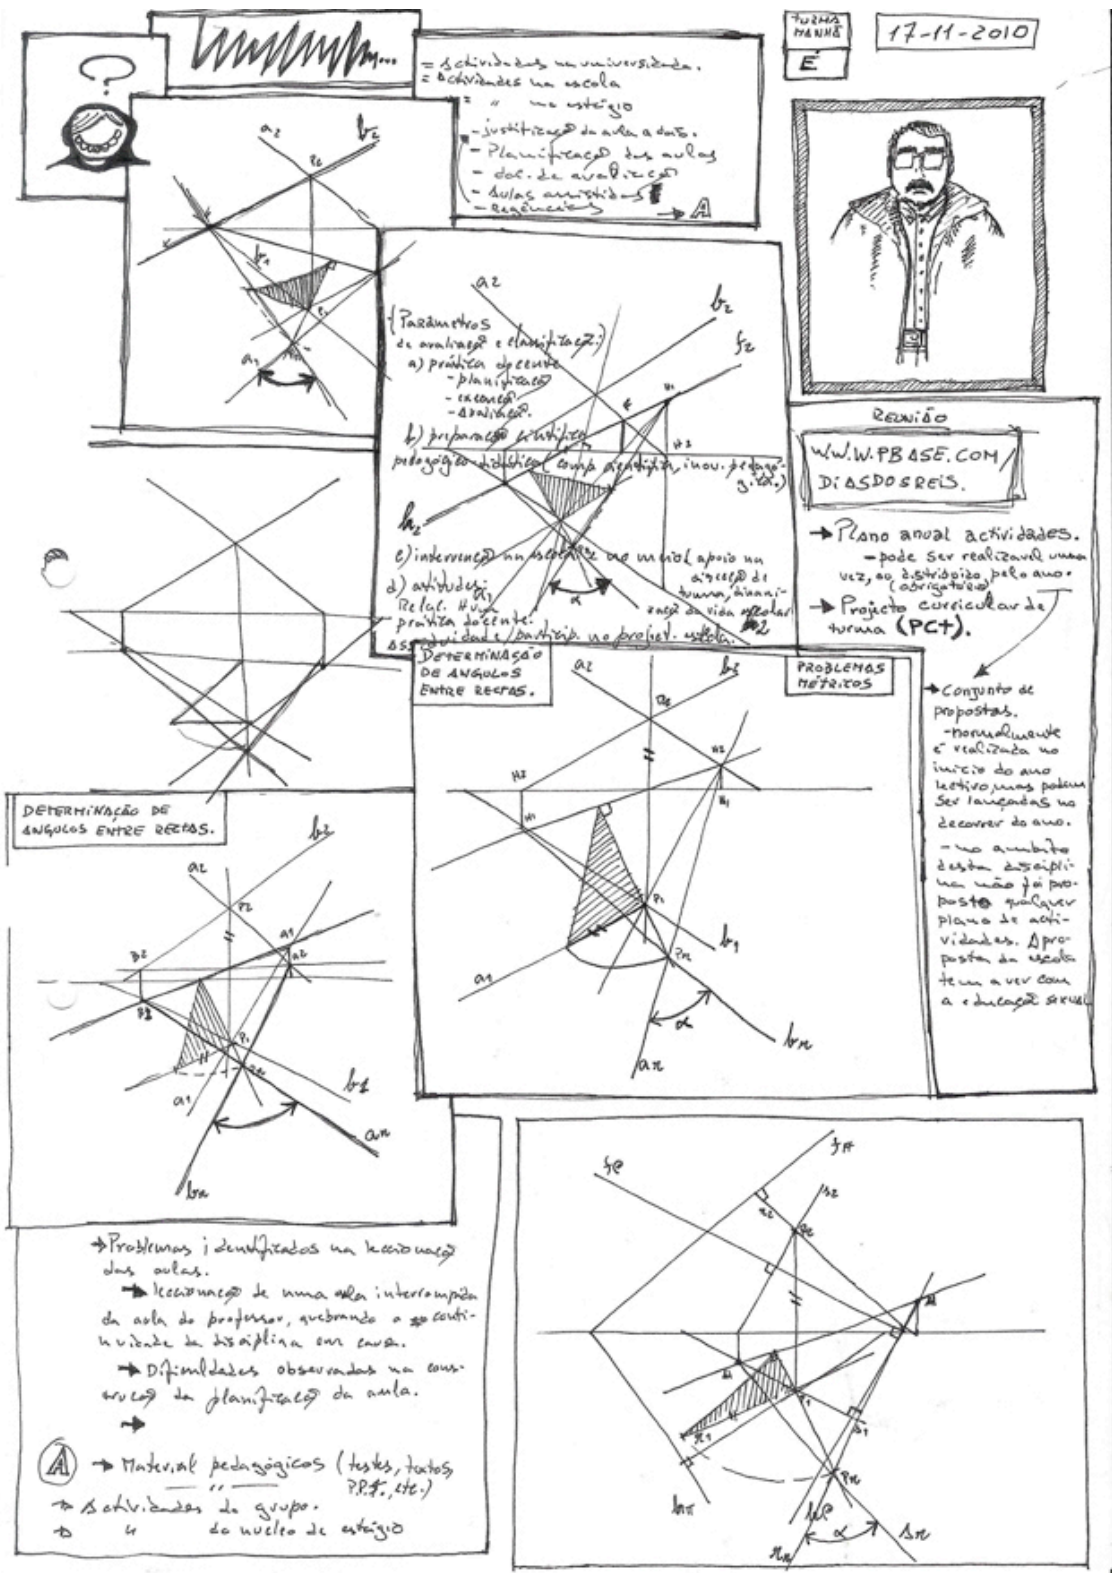 TURMA
MANHÃ
É
17-11-2010
= Actividades na universidade.
= Actividades na escola
= " no estágio
- justificação da aula a dois.
- Planificação das aulas
- doc. de avaliação
- Aulas assistidas
- Regências → A
a2
b2
P2
a1
{Parâmetros
de avaliação e classificação:}
a) prática docente
- planificação
- execução
- Avaliação.
b) preparação científica
pedagógico-didática (comp. científica, inov. pedagó-
gica.)
c) intervenção na escola e no meio, apoio na
direcção de
turma, dinami-
zação da vida escolar
d) atitudes:
Relac. Hum
prática docente.
Assiduidade/particip. no project. escola.
a2
b2
f2
h2
α
REUNIÃO
WWW.PBASE.COM/
DIASDOSREIS.
→ Plano anual actividades.
- pode ser realizavel uma
vez, ou distribuido pelo ano.
(obrigatório)
→ Projecto curricular de
turma (PCT).
→ Conjunto de
propostas.
- normalmente
é realizada no
início do ano
lectivo, mas podem
ser lançadas no
decorrer do ano.
- no ambito
desta discipli-
na não foi pro-
posto qualquer
plano de acti-
vidades. A pro-
posta da escola
tem a ver com
a educação sexual
DETERMINAÇÃO
DE ANGULOS
ENTRE RECTAS.
PROBLEMAS
MÉTRICOS
a2
b2
H2
H2
H1
H1
P1
a1
b1
Pr
α
br
ar
DETERMINAÇÃO DE
ANGULOS ENTRE RECTAS.
b2
a2
P2
A1
B2
A2
P1
a1
b1
ar
br
→ Problemas identificados na leccionação
das aulas.
→ leccionação de uma aula interrompida
da aula do professor, quebrando a conti-
nuidade da disciplina em causa.
→ Dificuldades observadas na cons-
trução da planificação da aula.
→
A → Material pedagógicos (testes, textos,
" P.P.T., etc.)
→ Actividades do grupo.
→ " do nucleo de estágio
fA
fP
r2
s2
P1
r1
s1
Pr
hπ
hP
α
sr
rr